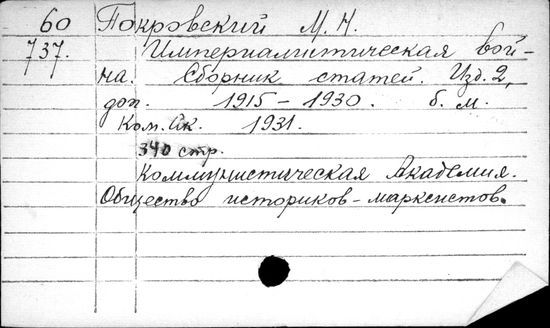 60 Покровский М. Н.
737. Империалистическая вой-
на. Сборник статей. Изд. 2,
доп. 1915 – 1930. б. м.
Ком. Ак. 1931.
340 стр.
Коммунистическая Академия.
Общество историков-марксистов.